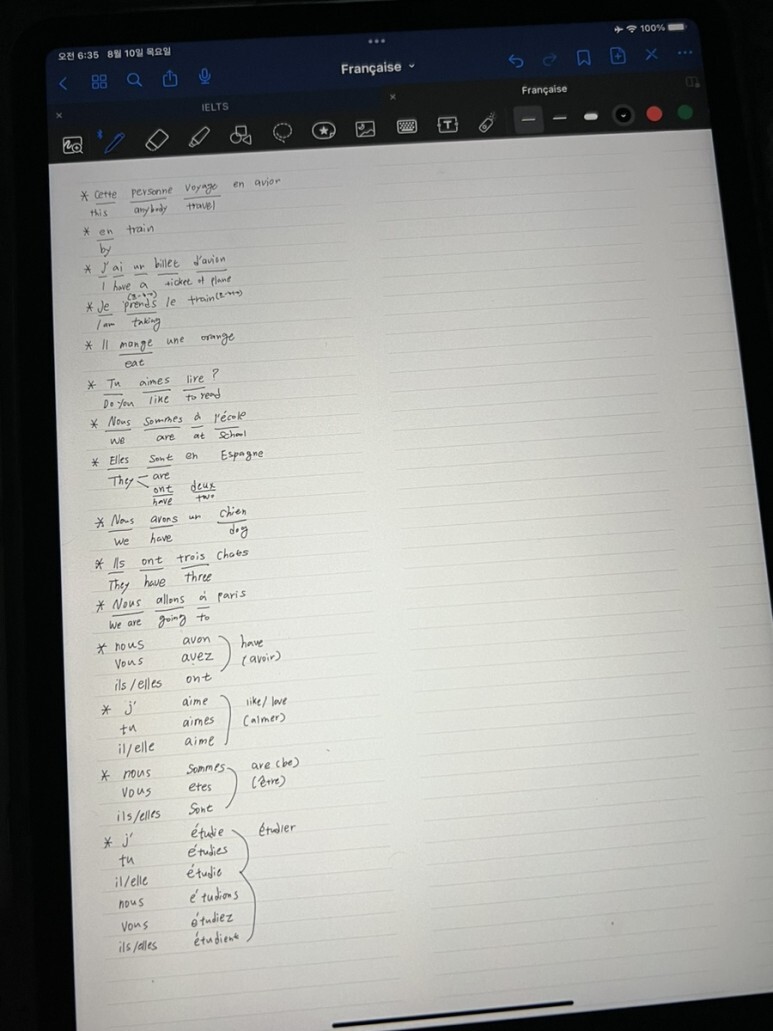 오전 6:35 8월 10일 목요일 100%
Française
IELTS
Française
* Cette personne voyage en avion
this anybody travel
* en train
by
* J'ai un billet d'avion
I have a ticket of plane
* Je prends le train
I am taking
* Il mange une orange
eat
* Tu aimes lire ?
Do you like to read
* Nous sommes à l'école
we are at school
* Elles sont en Espagne
They are
ont deux
have two
* Nous avons un chien
we have dog
* Ils ont trois chats
They have three
* Nous allons à paris
we are going to
* nous avon have
vous avez (avoir)
ils/elles ont
* j' aime like/love
tu aimes (aimer)
il/elle aime
* nous sommes are (be)
vous etes (être)
ils/elles sont
* j' étudie étudier
tu étudies
il/elle étudie
nous étudions
vous étudiez
ils/elles étudient